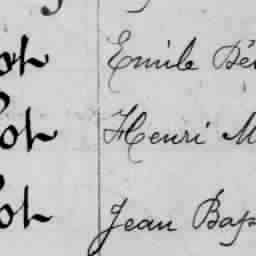 ot Emile Bé
ot Henri M
ot Jean Bap